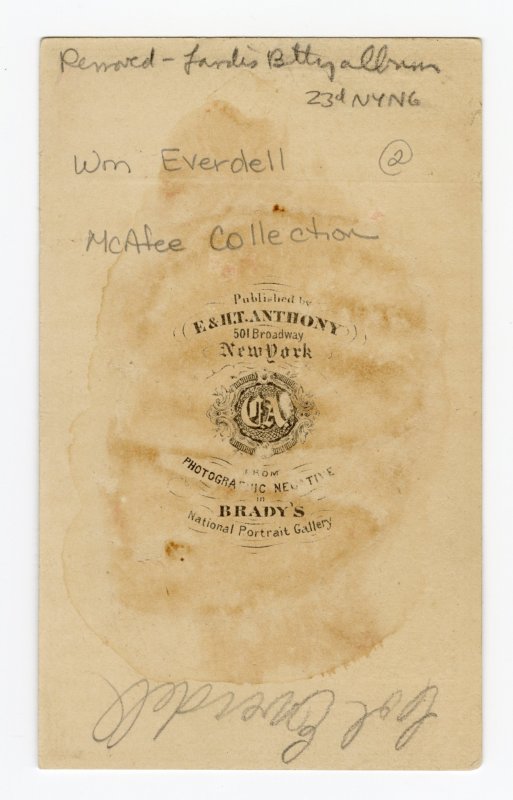 Removed - Landis Bttry album
23d NYNG
Wm Everdell ②
McAfee Collection
Published by
E & H.T. ANTHONY
501 Broadway
New York
FROM
PHOTOGRAPHIC NEGATIVE
in
BRADY'S
National Portrait Gallery
Col Everdell